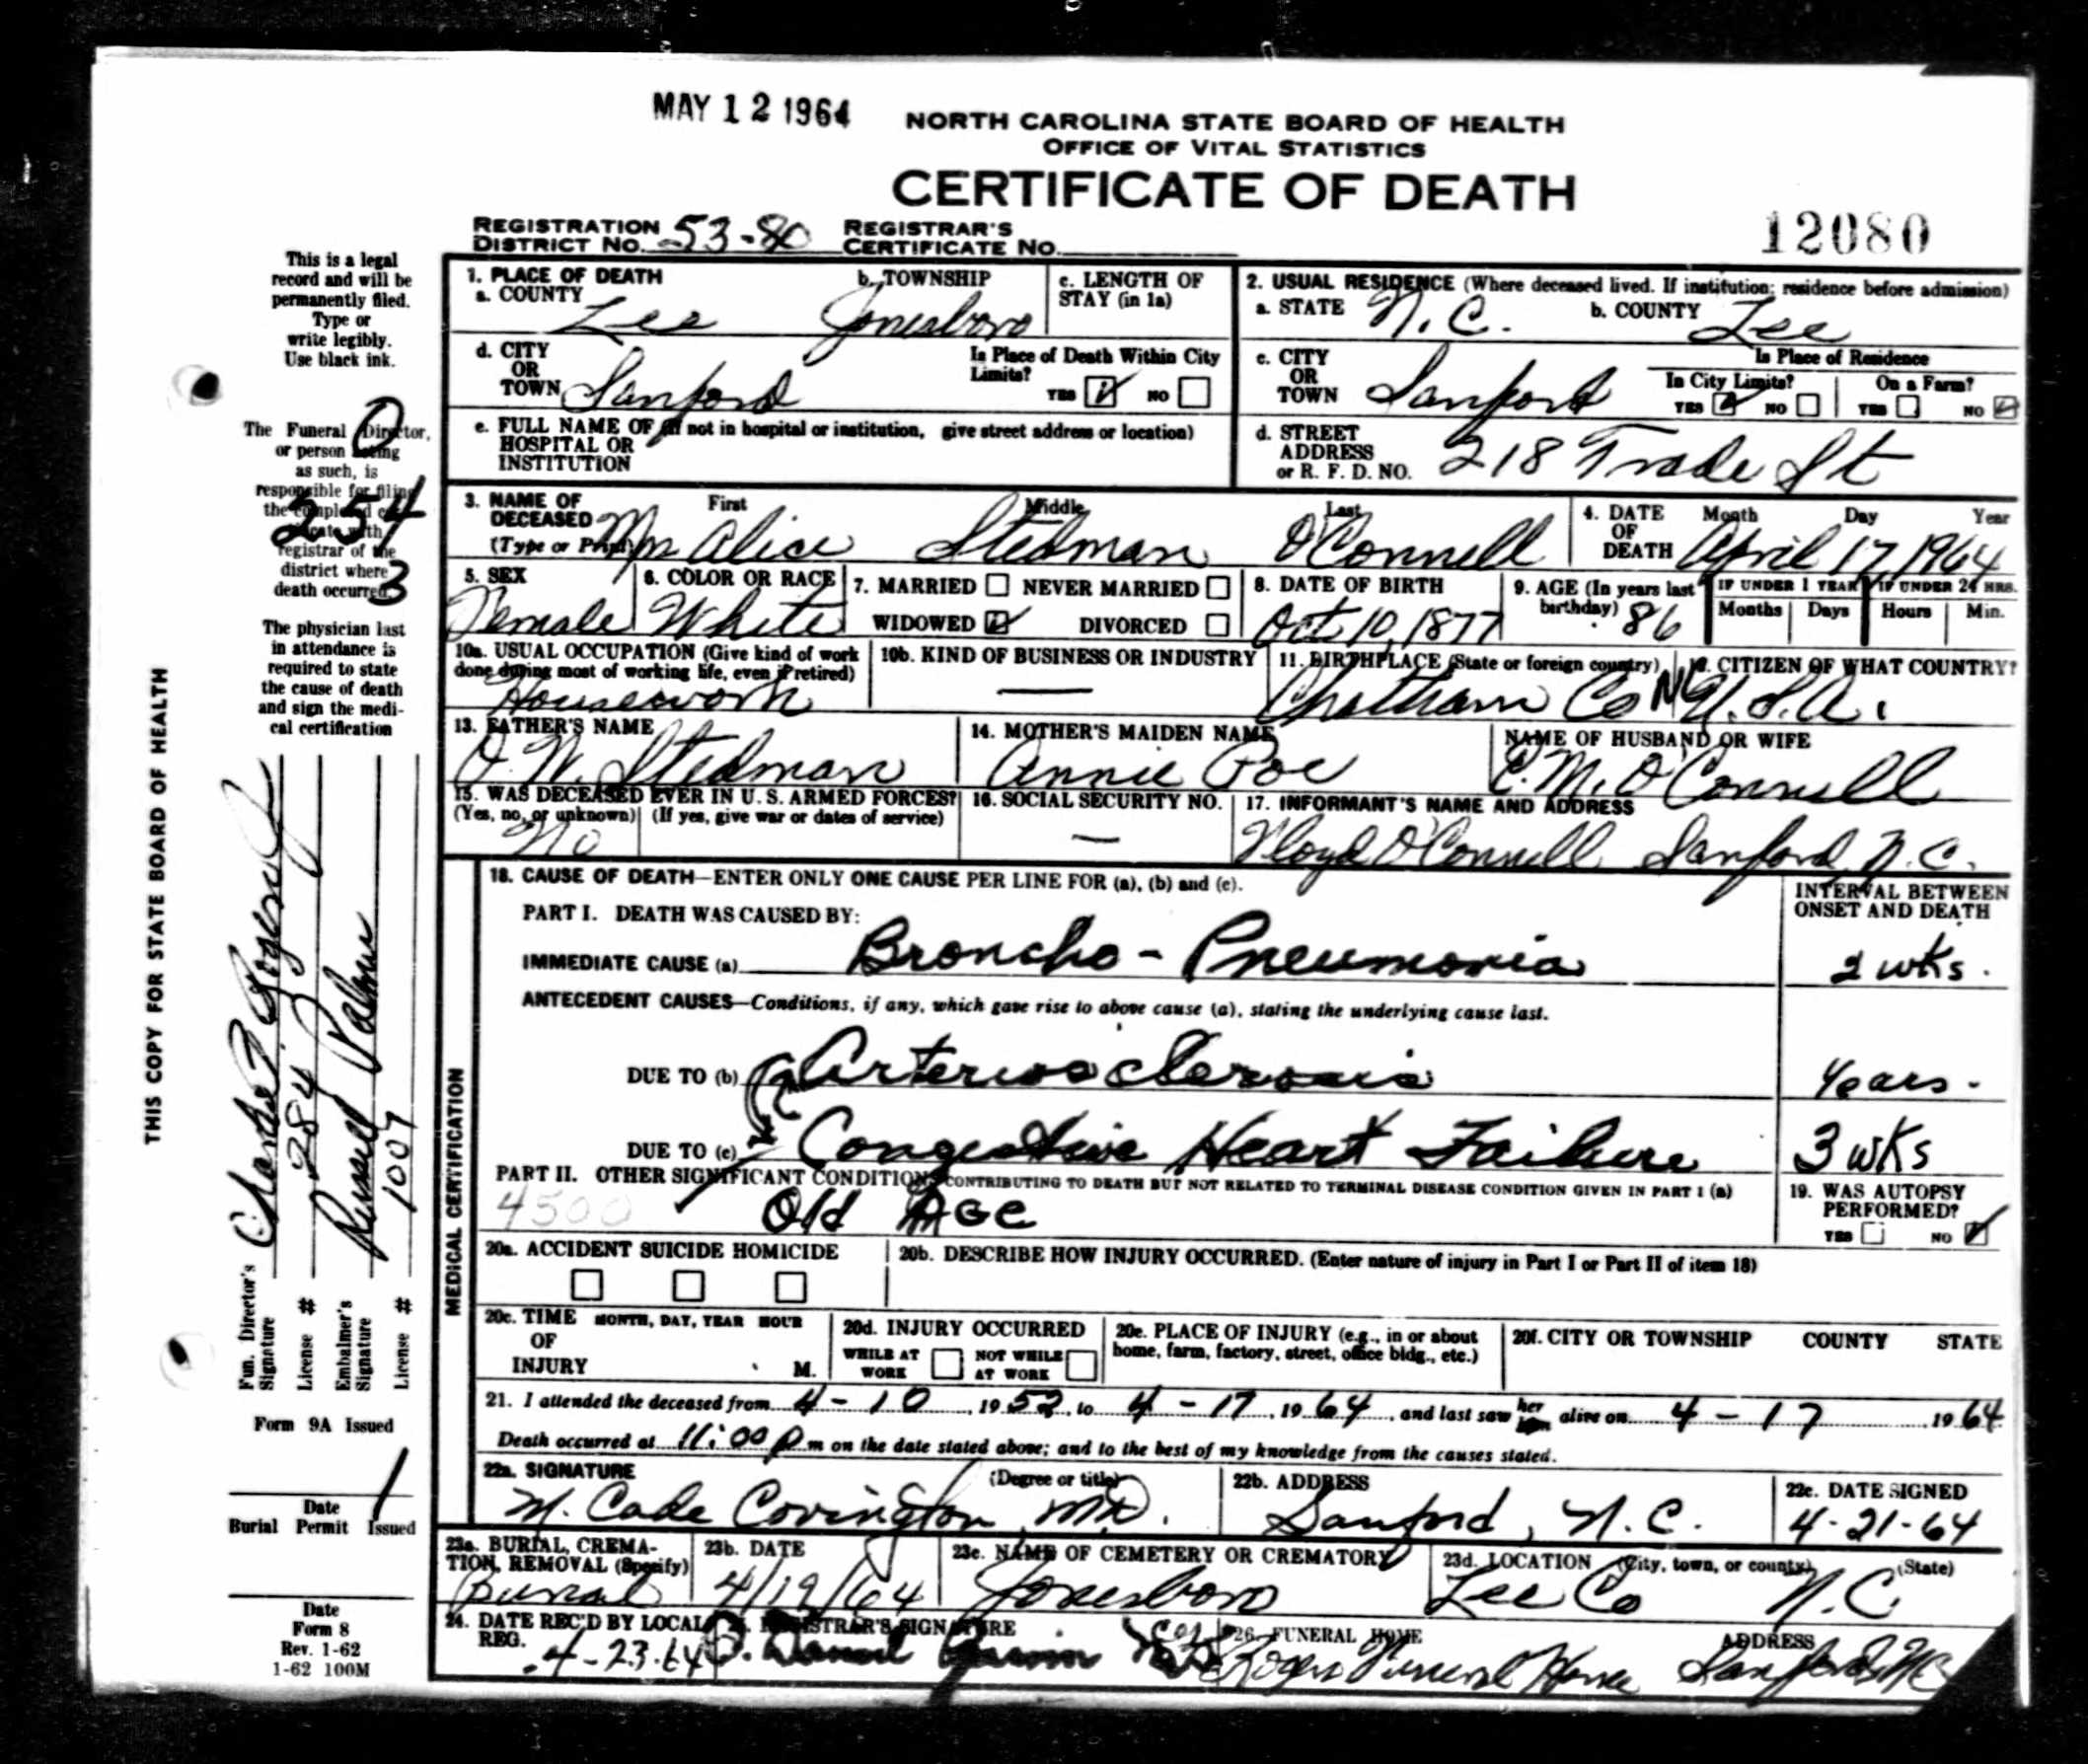 MAY 12 1964
NORTH CAROLINA STATE BOARD OF HEALTH
OFFICE OF VITAL STATISTICS
CERTIFICATE OF DEATH
12080
REGISTRATION DISTRICT NO. 53-80 REGISTRAR'S CERTIFICATE NO.
THIS COPY FOR STATE BOARD OF HEALTH
This is a legal
record and will be
permanently filed.
Type or
write legibly.
Use black ink.
The Funeral Director,
or person acting
as such, is
responsible for filing
the completed
with
registrar of the
district where
death occurred
0
254
3
The physician last
in attendance is
required to state
the cause of death
and sign the medi-
cal certification
Fun. Director's Signature
License # 284
Embalmer's Signature Russell Palmer
License # 1007
Form 9A Issued
1
Date
Burial Permit Issued
Date
Form 8
Rev. 1-62
1-62 100M
1. PLACE OF DEATH
a. COUNTY Lee
b. TOWNSHIP Jonesboro
c. LENGTH OF STAY (in 1a)
2. USUAL RESIDENCE (Where deceased lived. If institution; residence before admission)
a. STATE N.C. b. COUNTY Lee
d. CITY OR TOWN Sanford
Is Place of Death Within City Limits? YES NO
c. CITY OR TOWN Sanford
Is Place of Residence
In City Limits? YES NO On a Farm? YES NO
e. FULL NAME OF (If not in hospital or institution, give street address or location)
HOSPITAL OR
INSTITUTION
d. STREET ADDRESS or R. F. D. NO. 218 Trade St
3. NAME OF DECEASED (Type or Print) First Middle Last
Alice Stedman O'Connell
4. DATE OF DEATH Month Day Year
April 17, 1964
5. SEX Female
6. COLOR OR RACE White
7. MARRIED NEVER MARRIED
WIDOWED DIVORCED
8. DATE OF BIRTH Oct. 10, 1877
9. AGE (In years last birthday) 86
IF UNDER 1 YEAR Months Days
IF UNDER 24 HRS. Hours Min.
10a. USUAL OCCUPATION (Give kind of work done during most of working life, even if retired)
Housework
10b. KIND OF BUSINESS OR INDUSTRY —
11. BIRTHPLACE (State or foreign country) Chatham Co NC
12. CITIZEN OF WHAT COUNTRY? U.S.A.
13. FATHER'S NAME O.W. Stedman
14. MOTHER'S MAIDEN NAME Annie Poe
NAME OF HUSBAND OR WIFE C.M. O'Connell
15. WAS DECEASED EVER IN U. S. ARMED FORCES?
(Yes, no, or unknown) (If yes, give war or dates of service)
No
16. SOCIAL SECURITY NO. —
17. INFORMANT'S NAME AND ADDRESS
Floyd O'Connell Sanford, N.C.
MEDICAL CERTIFICATION
18. CAUSE OF DEATH—ENTER ONLY ONE CAUSE PER LINE FOR (a), (b) and (c).
INTERVAL BETWEEN ONSET AND DEATH
PART I. DEATH WAS CAUSED BY:
IMMEDIATE CAUSE (a) Broncho-Pneumonia 2 wks.
ANTECEDENT CAUSES—Conditions, if any, which gave rise to above cause (a), stating the underlying cause last.
DUE TO (b) Arteriosclerosis Years.
DUE TO (c) Congestive Heart Failure 3 wks
PART II. OTHER SIGNIFICANT CONDITIONS CONTRIBUTING TO DEATH BUT NOT RELATED TO TERMINAL DISEASE CONDITION GIVEN IN PART I (a)
4500 Old Age
19. WAS AUTOPSY PERFORMED?
YES NO
20a. ACCIDENT SUICIDE HOMICIDE
20b. DESCRIBE HOW INJURY OCCURRED. (Enter nature of injury in Part I or Part II of item 18)
20c. TIME OF INJURY MONTH, DAY, YEAR HOUR M.
20d. INJURY OCCURRED
WHILE AT WORK NOT WHILE AT WORK
20e. PLACE OF INJURY (e.g., in or about home, farm, factory, street, office bldg., etc.)
20f. CITY OR TOWNSHIP COUNTY STATE
21. I attended the deceased from 4-10, 1952, to 4-17, 1964, and last saw her him alive on 4-17 1964
Death occurred at 11:00 P m on the date stated above; and to the best of my knowledge from the causes stated.
22a. SIGNATURE (Degree or title)
M. Cade Covington, M.D.
22b. ADDRESS
Sanford, N.C.
22c. DATE SIGNED
4-21-64
23a. BURIAL, CREMATION, REMOVAL (Specify)
Burial
23b. DATE
4/19/64
23c. NAME OF CEMETERY OR CREMATORY
Jonesboro
23d. LOCATION (City, town, or county) (State)
Lee Co N.C.
24. DATE REC'D BY LOCAL REG. 4-23-64
REGISTRAR'S SIGNATURE
26. FUNERAL HOME ADDRESS
Rogers Funeral Home Sanford, NC